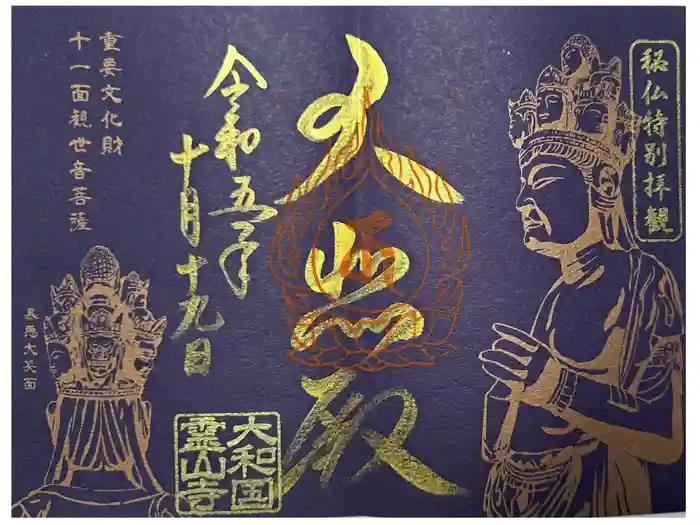 秘仏特別拝観
大悲殿
令和五年
十月十九日
重要文化財
十一面観世音菩薩
暴悪大笑面
大和国
霊山寺